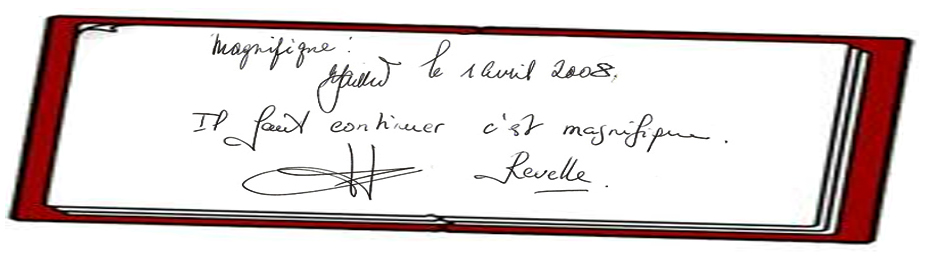 magnifique :
le 1 avril 2008.
Il faut continuer c'est magnifique.
Revelle.